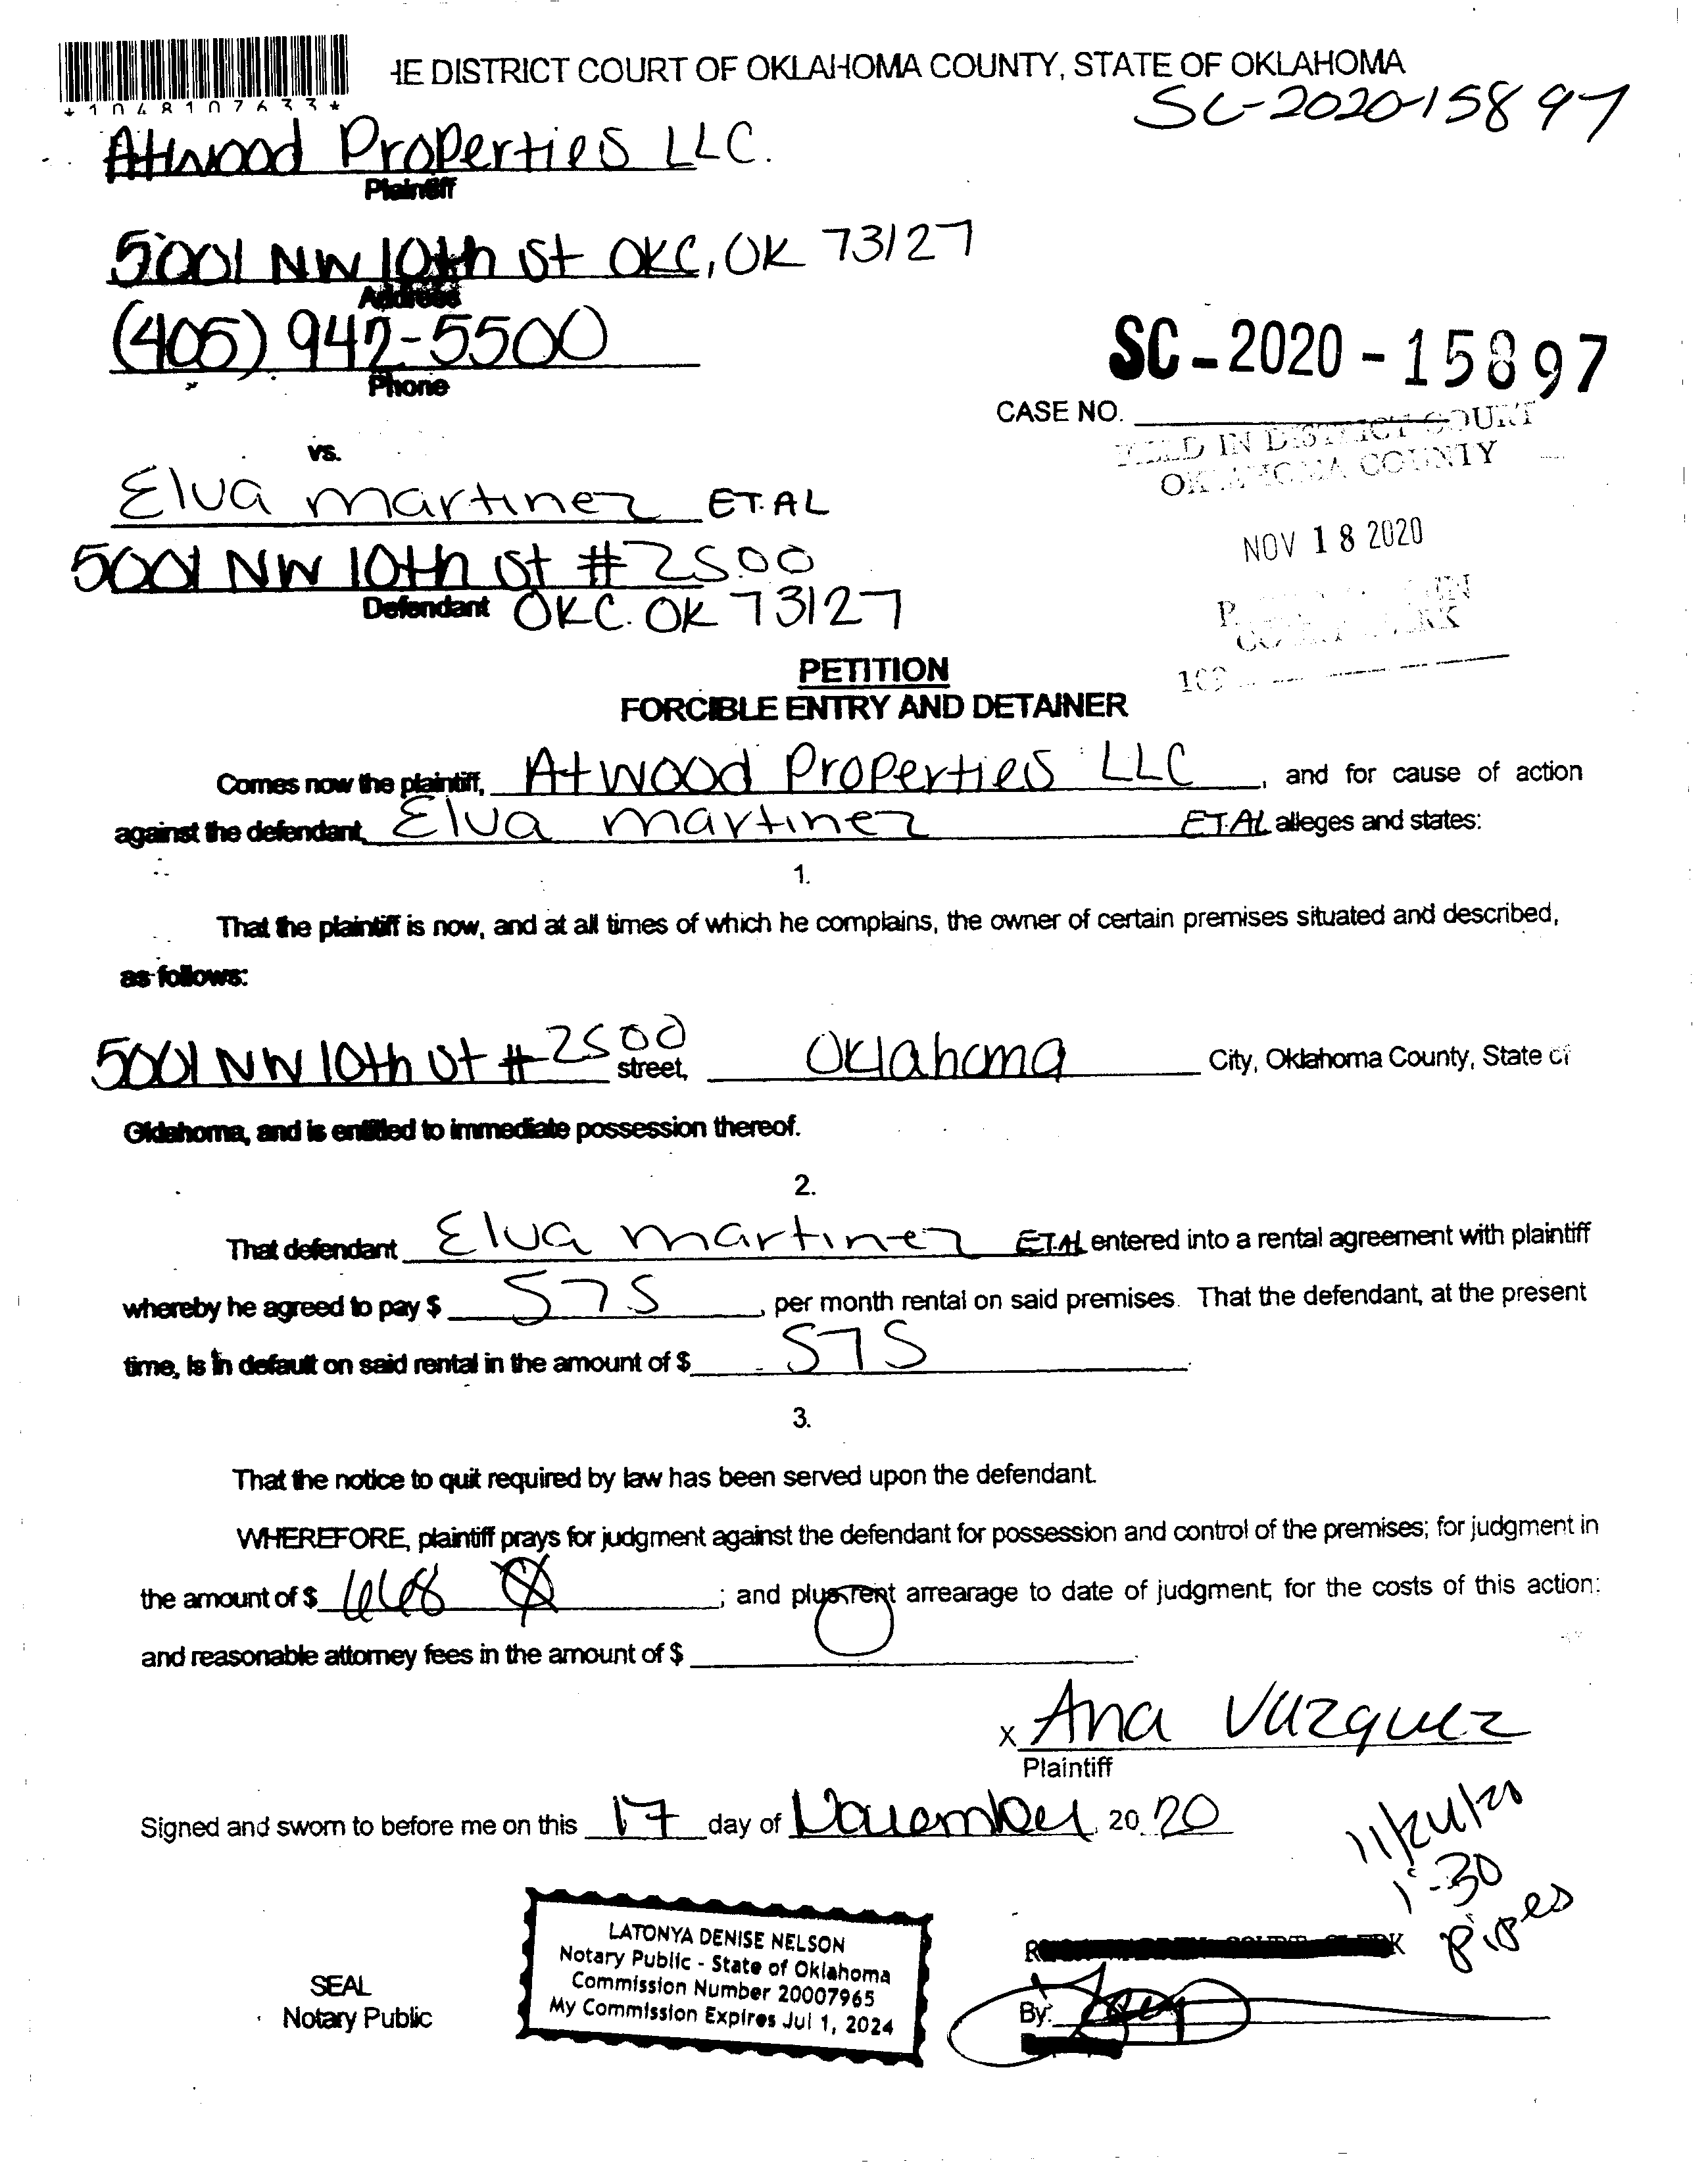 *1048107633*
HE DISTRICT COURT OF OKLAHOMA COUNTY, STATE OF OKLAHOMA
SC-2020-15897
Atwood Properties LLC.
Plaintiff
5001 NW 10th St OKC, OK 73127
Address
(405) 942-5500
Phone
SC-2020-15897
CASE NO.
FILED IN DISTRICT COURT
OKLAHOMA COUNTY
vs.
Elva Martinez ET.AL
NOV 18 2020
5001 NW 10th St # 2500
Defendant OKC. OK 73127
COURT CLERK
PETITION
FORCIBLE ENTRY AND DETAINER
Comes now the plaintiff, Atwood Properties LLC, and for cause of action
against the defendant, Elva Martinez ET.AL alleges and states:
1.
That the plaintiff is now, and at all times of which he complains, the owner of certain premises situated and described,
as follows:
5001 NW 10th St # 2500 street, Oklahoma City, Oklahoma County, State of
Oklahoma, and is entitled to immediate possession thereof.
2.
That defendant Elva Martinez ET.AL entered into a rental agreement with plaintiff
whereby he agreed to pay $ 575, per month rental on said premises. That the defendant, at the present
time, is in default on said rental in the amount of $ 575.
3.
That the notice to quit required by law has been served upon the defendant.
WHEREFORE, plaintiff prays for judgment against the defendant for possession and control of the premises; for judgment in
the amount of $ 668; and plus rent arrearage to date of judgment; for the costs of this action:
and reasonable attorney fees in the amount of $
x Ana Vazquez
Plaintiff
Signed and sworn to before me on this 17 day of November, 20 20
1:30
Pipes
LATONYA DENISE NELSON
Notary Public - State of Oklahoma
Commission Number 20007965
My Commission Expires Jul 1, 2024
SEAL
Notary Public
By: